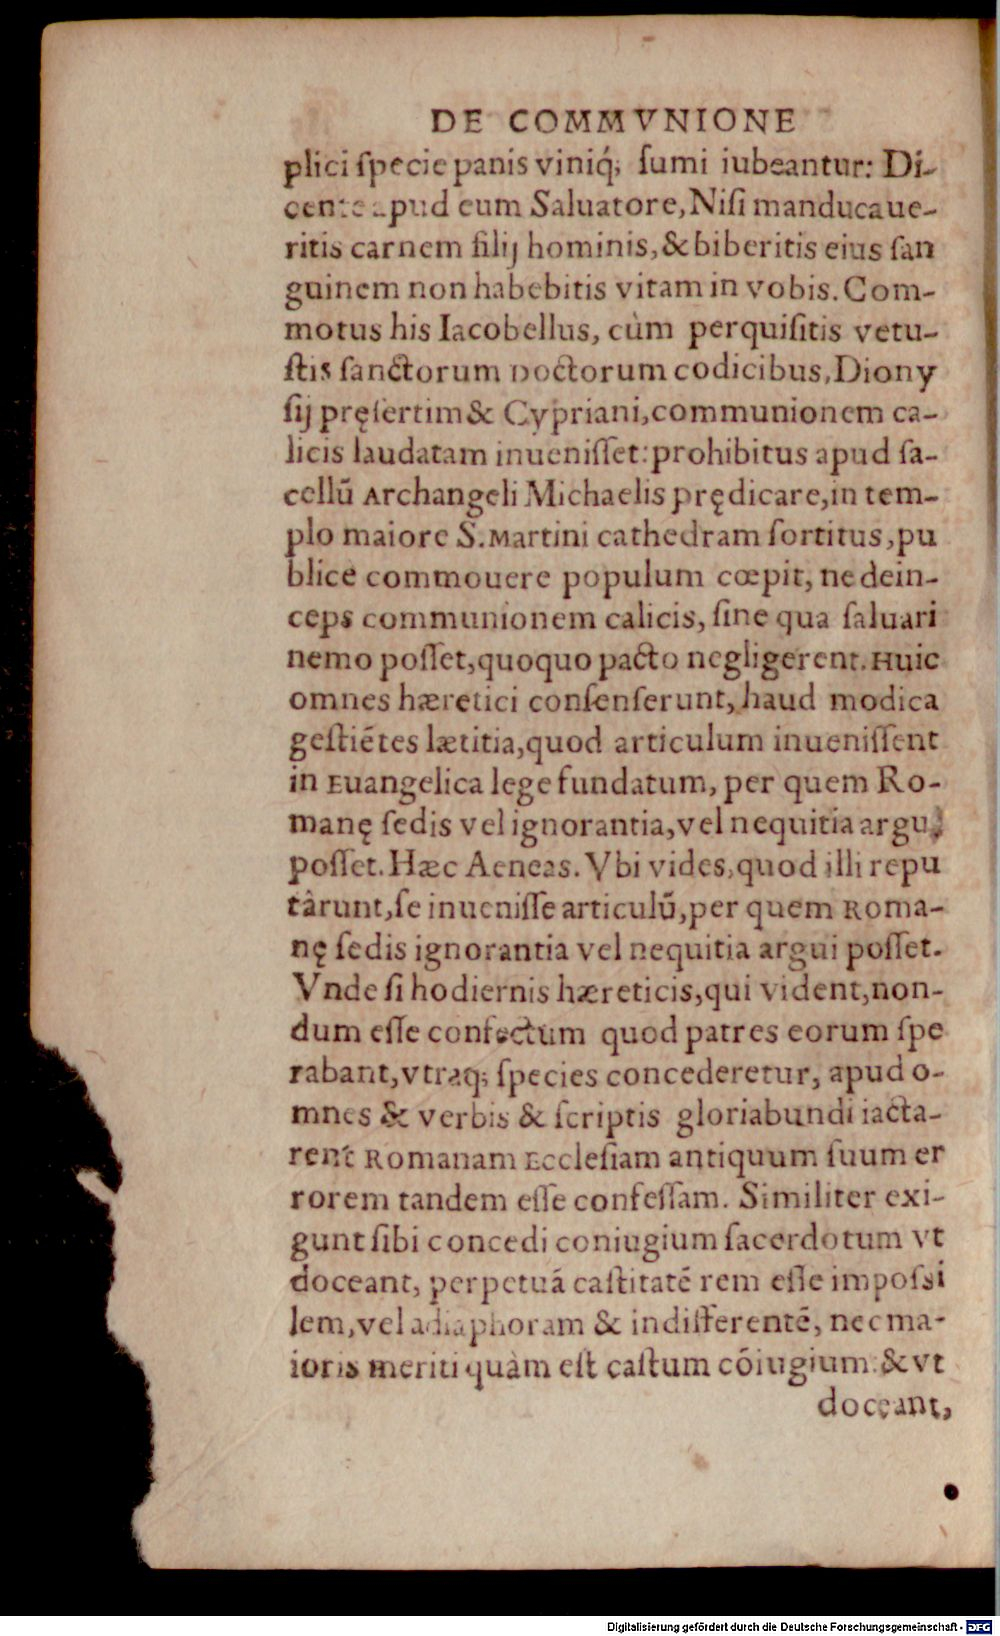 DE COMMVNIONE
plici ſpecie panis viniq́; ſumi iubeantur: Di-
cente apud eum Saluatore, Niſi manducaue-
ritis carnem filij hominis, & biberitis eius ſan
guinem non habebitis vitam in vobis. Com-
motus his Iacobellus, cùm perquiſitis vetu-
ſtis ſanctorum doctorum codicibus, Diony
ſij pręſertim & Cypriani, communionem ca-
licis laudatam inueniſſet: prohibitus apud ſa-
cellū Archangeli Michaelis prędicare, in tem-
plo maiore S. Martini cathedram ſortitus, pu
blice commouere populum cœpit, ne dein-
ceps communionem calicis, ſine qua ſaluari
nemo poſſet, quoquo pacto negligerent. Huic
omnes hæretici conſenſerunt, haud modica
geſtiētes lætitia, quod articulum inueniſſent
in Euangelica lege fundatum, per quem Ro-
manę ſedis vel ignorantia, vel nequitia argui
poſſet. Hæc Aeneas. Vbi vides, quod illi repu
târunt, ſe inueniſſe articulū, per quem Roma-
nę ſedis ignorantia vel nequitia argui poſſet.
Vnde ſi hodiernis hæreticis, qui vident, non-
dum eſſe confectum quod patres eorum ſpe
rabant, vtraq; ſpecies concederetur, apud o-
mnes & verbis & ſcriptis gloriabundi iacta-
rent Romanam Eccleſiam antiquum ſuum er
rorem tandem eſſe confeſſam. Similiter exi-
gunt ſibi concedi coniugium ſacerdotum vt
doceant, perpetuā caſtitatē rem eſſe impoſsi
lem, vel adiaphoram & indifferentē, nec ma-
ioris meriti quàm eſt caſtum cōiugium: & vt
doceant,
Digitalisierung gefördert durch die Deutsche Forschungsgemeinschaft - DFG